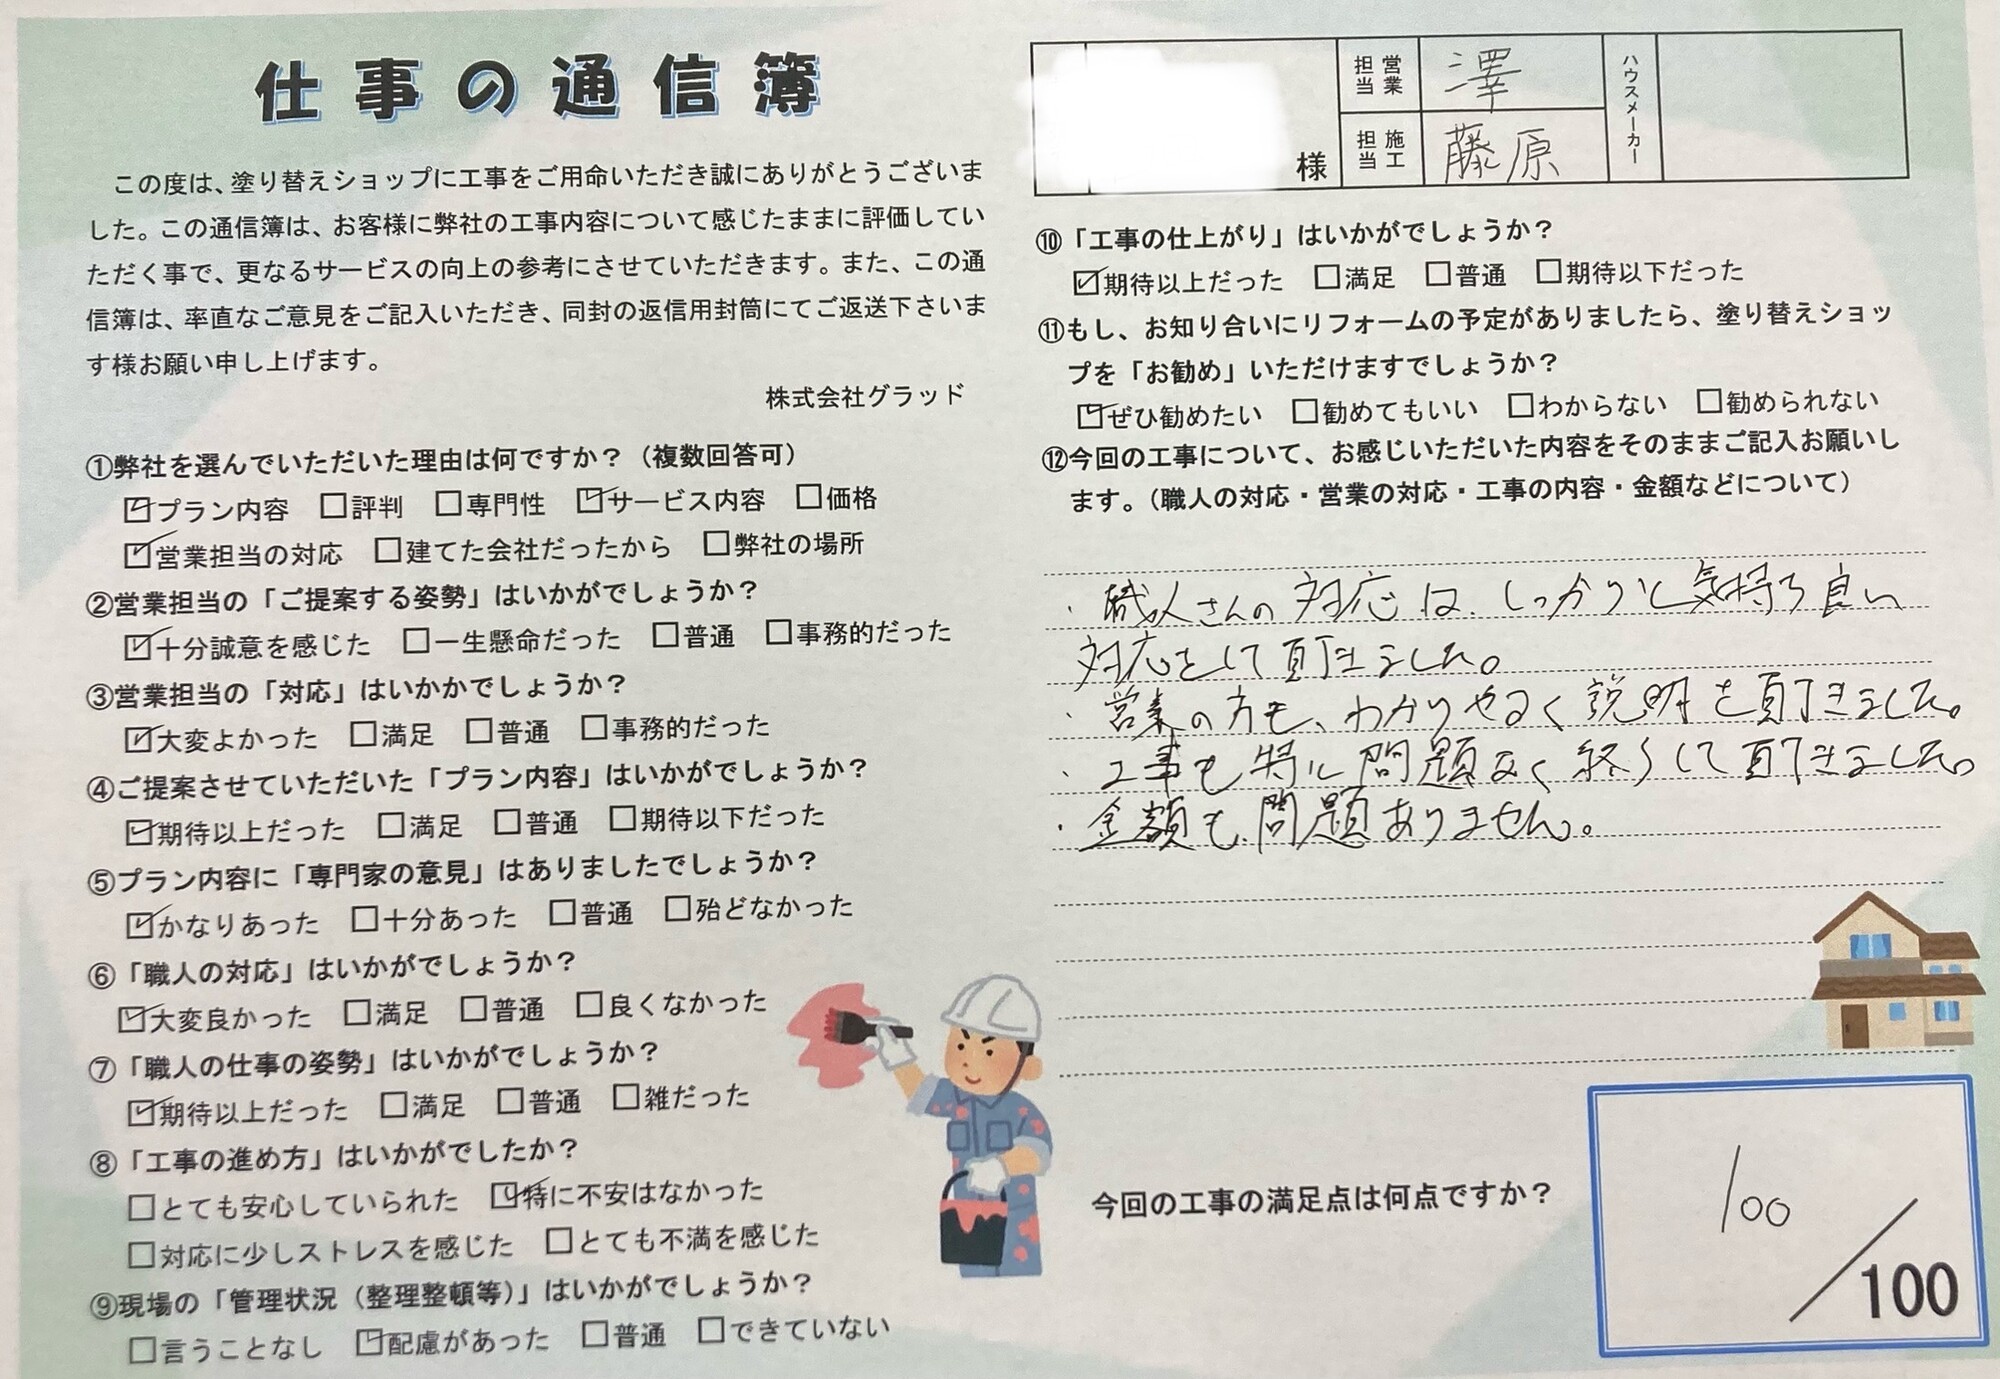 仕事の通信簿
この度は、塗り替えショップに工事をご用命いただき誠にありがとうございま
した。この通信簿は、お客様に弊社の工事内容について感じたままに評価してい
ただく事で、更なるサービスの向上の参考にさせていただきます。また、この通
信簿は、率直なご意見をご記入いただき、同封の返信用封筒にてご返送下さいま
す様お願い申し上げます。
株式会社グラッド
①弊社を選んでいただいた理由は何ですか？（複数回答可）
☑プラン内容 □評判 □専門性 ☑サービス内容 □価格
☑営業担当の対応 □建てた会社だったから □弊社の場所
②営業担当の「ご提案する姿勢」はいかがでしょうか？
☑十分誠意を感じた □一生懸命だった □普通 □事務的だった
③営業担当の「対応」はいかかでしょうか？
☑大変よかった □満足 □普通 □事務的だった
④ご提案させていただいた「プラン内容」はいかがでしょうか？
☑期待以上だった □満足 □普通 □期待以下だった
⑤プラン内容に「専門家の意見」はありましたでしょうか？
☑かなりあった □十分あった □普通 □殆どなかった
⑥「職人の対応」はいかがでしょうか？
☑大変良かった □満足 □普通 □良くなかった
⑦「職人の仕事の姿勢」はいかがでしょうか？
☑期待以上だった □満足 □普通 □雑だった
⑧「工事の進め方」はいかがでしたか？
□とても安心していられた ☑特に不安はなかった
□対応に少しストレスを感じた □とても不満を感じた
⑨現場の「管理状況（整理整頓等）」はいかがでしょうか？
□言うことなし ☑配慮があった □普通 □できていない
様
営業担当 澤
施工担当 藤原
ハウスメーカー
⑩「工事の仕上がり」はいかがでしょうか？
☑期待以上だった □満足 □普通 □期待以下だった
⑪もし、お知り合いにリフォームの予定がありましたら、塗り替えショッ
プを「お勧め」いただけますでしょうか？
☑ぜひ勧めたい □勧めてもいい □わからない □勧められない
⑫今回の工事について、お感じいただいた内容をそのままご記入お願いし
ます。（職人の対応・営業の対応・工事の内容・金額などについて）
・職人さんの対応は、しっかりと気持ち良い
対応をして頂きました。
・営業の方も、わかりやすく説明を頂きました。
・工事も特に問題なく終了して頂きました。
・金額も問題ありません。
今回の工事の満足点は何点ですか？
100
／100